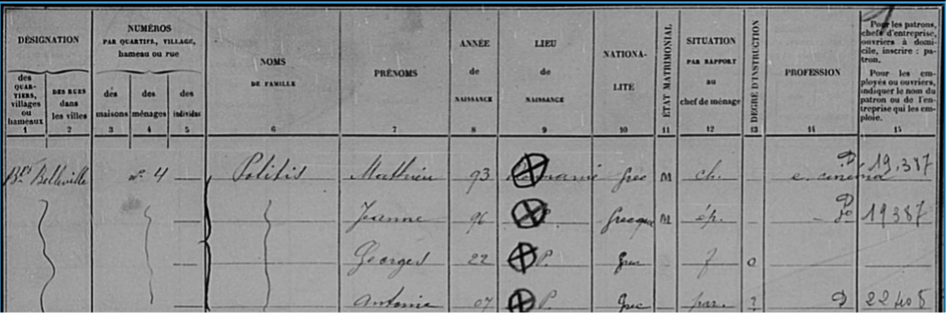 DÉSIGNATION
des QUAR-TIERS, villages ou hameaux
1
DES RUES dans les villes
2
NUMÉROS
PAR QUARTIFS, VILLAGE, hameau ou rue
des maisons
3
des ménages
4
des individus
5
NOMS
DE FAMILLE
6
PRÉNOMS
7
ANNÉE
de
NAISSANCE
8
LIEU
de
NAISSANCE
9
NATIONA-
LITÉ
10
ÉTAT MATRIMONIAL
11
SITUATION
PAR RAPPORT
au
chef de ménage
12
DEGRÉ D'INSTRUCTION
13
PROFESSION
14
Pour les patrons,
chefs d'entreprise,
ouvriers à domi-
cile, inscrire : pa-
tron.
Pour les em-
ployés ou ouvriers,
indiquer le nom du
patron ou de l'en-
treprise qui les em-
ploie.
15
Bd Belleville n° 4 Politis Mathieu 93 Roumanie Grec M ch. e. cinéma D 19.387
Jeanne 96 P. Grecque M ép. 19387
Georges 22 P. Grec f 0
Antonie 07 P. Grec par. ? D 22408